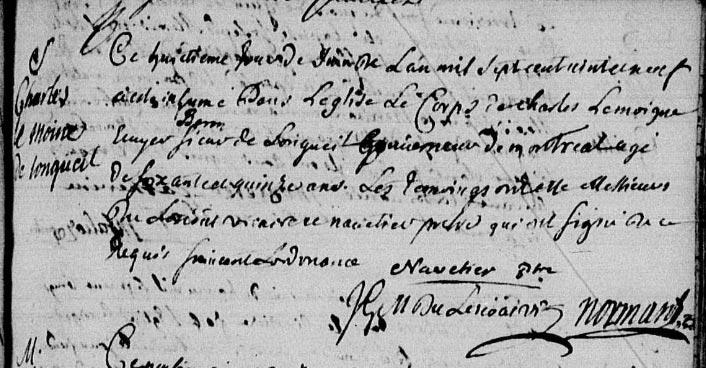 S
Charles
le moine
de longueil
Ce huictieme Jour de Juin de Lan mil sept cent vint neuf
a été inhumé Dans Leglise Le Corps de Charles Lemoigne
Ecuyer Baron sieur de Longueil Gouverneur de montreal agé
De soixante et quinze ans. Les temoings ont esté Messieurs
Du Lescoat vicaire et navetier pretre qui ont signé de ce
Requis suivant Lordonnance
Navetier ptre
Du Lescoat
normant
M.